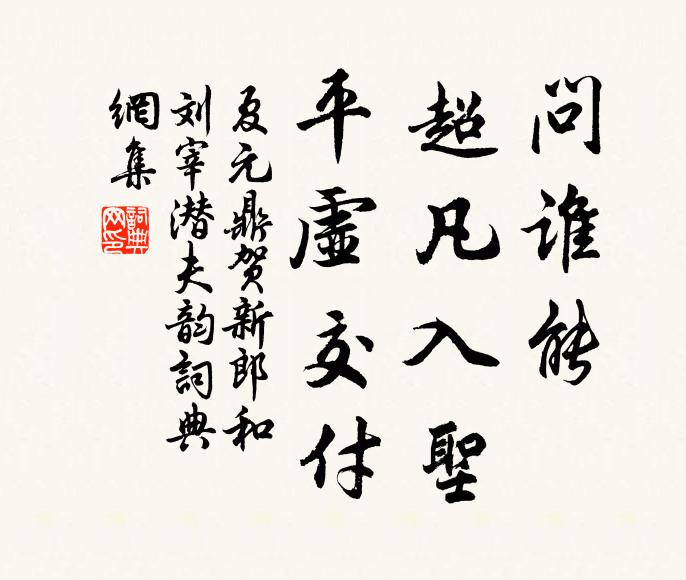 問谁能
超凡入聖
平虚交付
夏元鼎贺新郎和
刘宰潜夫韵詞典
網集
詞典网印